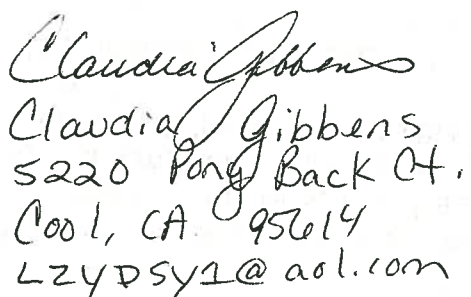 Claudia Gibbens
Claudia Gibbens
5220 Pony Back Ct.
Cool, CA 95614
LZYDSY1@aol.com